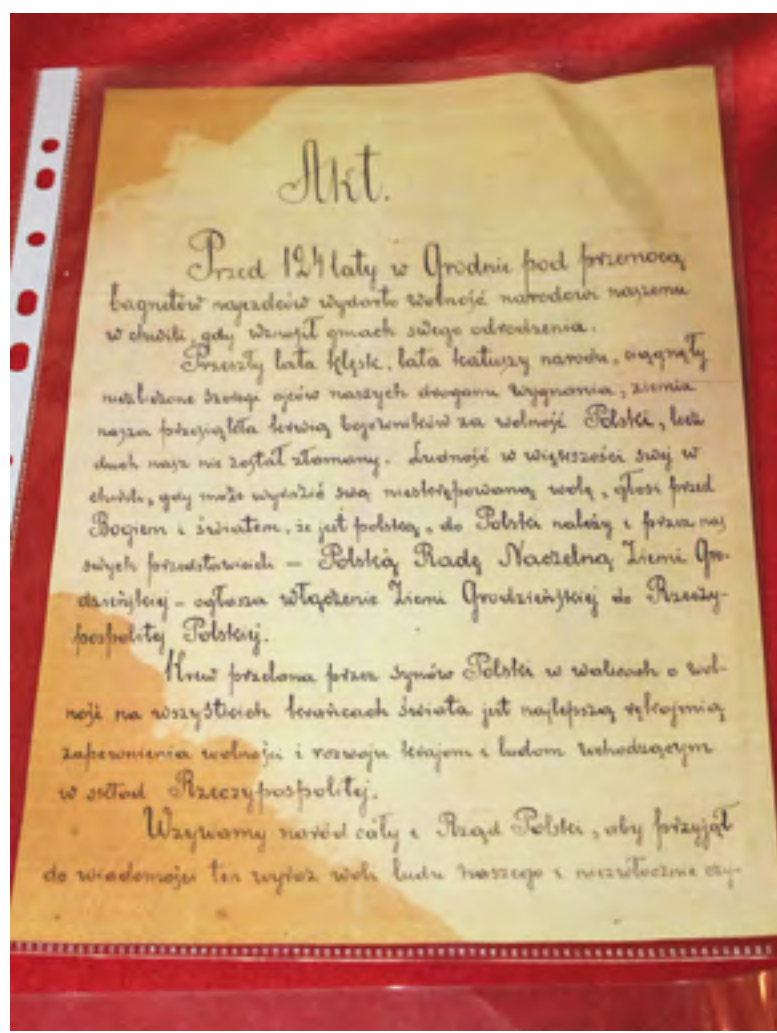 Akt.
Przed 124 laty w Grodnie pod przemocą
bagnetów najezdców wydarto wolność narodowi naszemu
w chwili, gdy wznosił gmach swego odrodzenia.
Przeszły lata klęsk, lata katuszy narodu, ciągnęły
niezliczone szeregi ojców naszych drogami wygnania, ziemia
nasza przesiąkła krwią bojowników za wolność Polski, lecz
duch nasz nie został złamany. Ludność w większości swej w
chwili, gdy może wyrazić swą nieskrępowaną wolę, głosi przed
Bogiem i światem, że jest polską, do Polski należy i przez nas
swych przedstawicieli – Polską Radę Naczelną Ziemi Gro-
dzieńskiej – ogłasza włączenie Ziemi Grodzieńskiej do Rzeczy-
pospolitej Polskiej.
Krew przelana przez synów Polski w walkach o wol-
ność na wszystkich krańcach świata jest najlepszą rękojmią
zapewnienia wolności i rozwoju krajom i ludom wchodzącym
w skład Rzeczypospolitej.
Wzywamy naród cały i Rząd Polski, aby przyjął
do wiadomości ten wyraz woli ludu naszego i niezwłocznie czy-